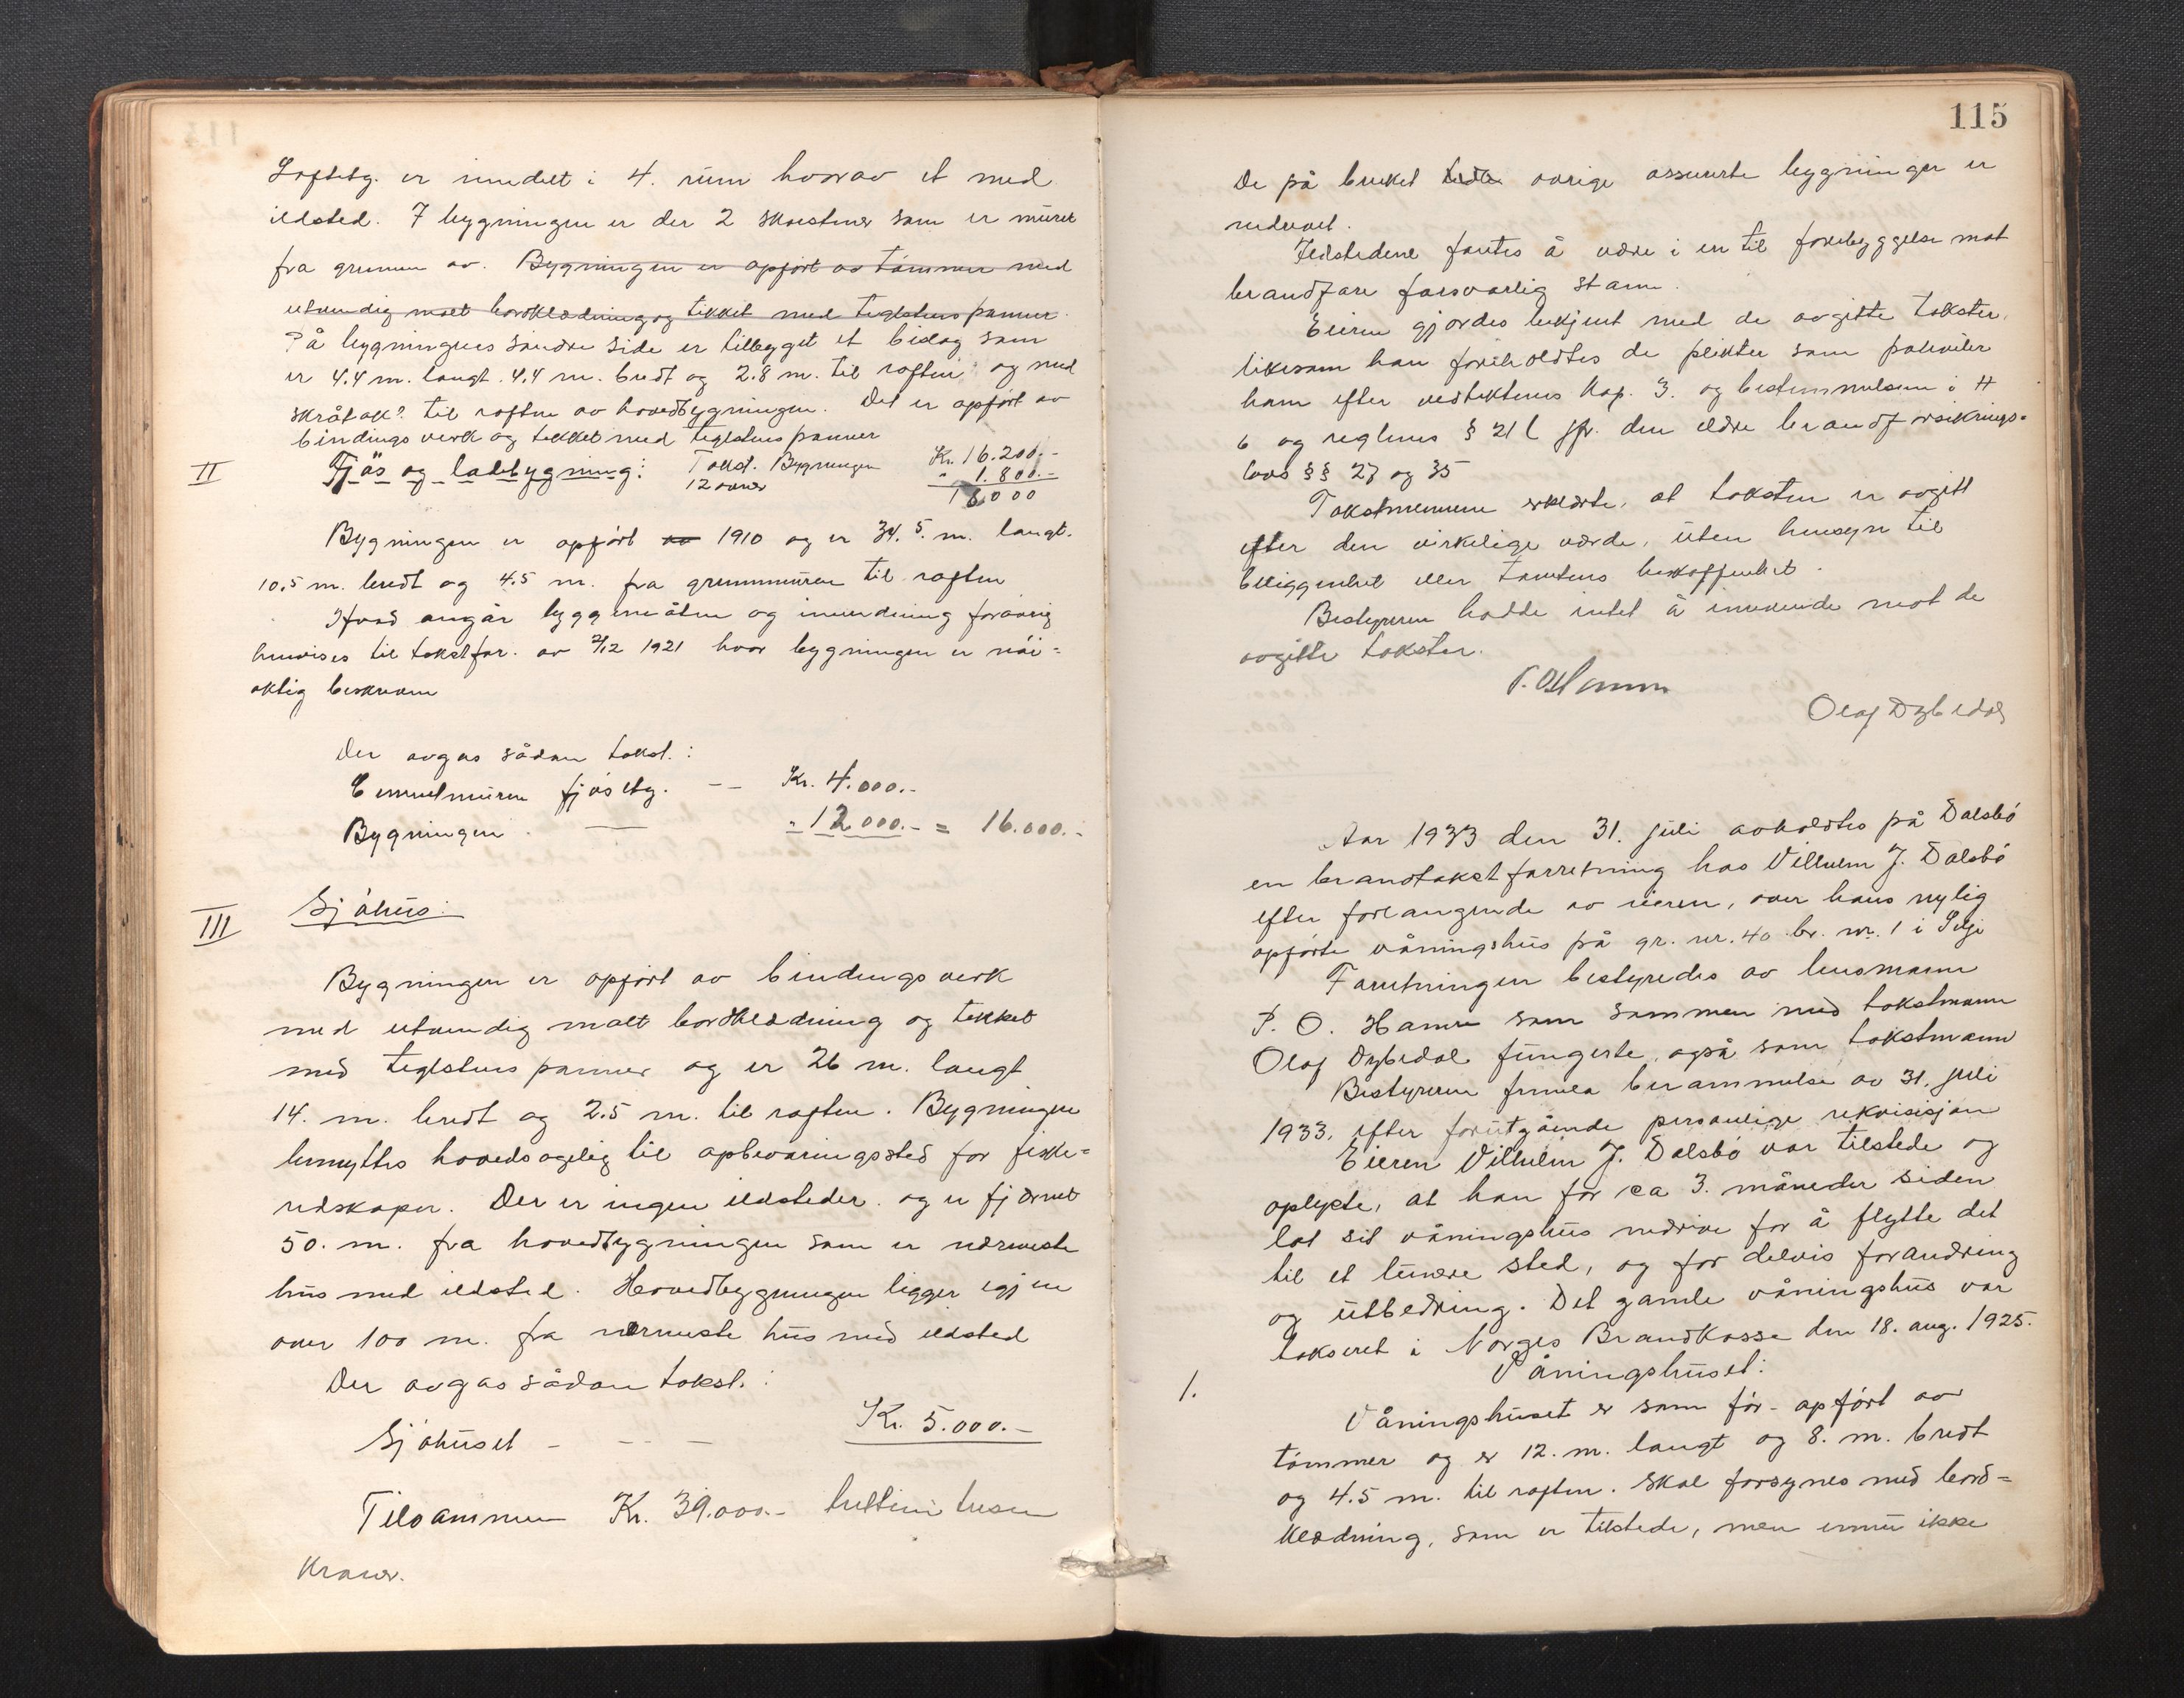 Loftetg. er inndelt i 4. rum hvorav et med
ildsted. I bygningen er der 2 skorstener som er muret
fra grunnen av. Bygningen er opført av tømmer med
utvendig malt bordklædning og tekket med teglstens panner.
På bygningens søndre side er tilbygget et bislag som
er 4.4 m. langt. 4.4 m. bredt og 2.8 m. til raften og med
skråtak? til raften av hovedbygningen. Det er opført av
bindingsverk og tekket med teglstens panner
II Fjøs og ladebygning: Takst. Bygningen Kr. 16.200.-
12 ovner " 1.800.-
18000
Bygningen er opført av 1910 og er 34.5. m. langt.
10.5 m. bredt og 4.5 m. fra grunnmuren til raften
Hvad angår byggemåten og innredning forøvrig
henvises til takstfor. av 2/12 1921 hvor bygningen er nøi=
aktig beskreven
Der avgas sådan takst.:
Grunnmuren fjøsbtg. -- Kr. 4.000.-
Bygningen. — " 12.000.- = 16.000.-
III Sjøhus:
Bygningen er opført av bindingsverk
med utvendig malt bordklædning og tekket
med teglstens panner og er 26 m. langt
14. m. bredt og 2.5 m. til raften. Bygningen
benyttes hovedsagelig til opbevaringssted for fiske=
redskaper. Der er ingen ildsteder og er fjernet
50. m. fra hovedbygningen som er nærmeste
hus med ildsted. Hovedbygningen ligger igjen
over 100 m. fra nærmeste hus med ildsted
Der avgas sådan takst.:
Sjøhuset - -- — Kr. 5.000.-
Tilsammen Kr. 39.000.- trettini tusen
kroner.
115
De på bruket øvrige assurerte bygninger er
nedrevet.
Ildstedene fantes å være i en til forebyggelse mot
brandfare forsvarlig stann.
Eieren gjordes bekjent med de avgitte takster,
likesom han foreholdtes de plikter som påhviler
ham efter vedtektenes Kap. 3. og bestemmelsen i H
6 og reglenes § 21 l jfr. den eldre brandforsikrings=
lovs §§ 27 og 35
Takstmennene erklærte, at taksten er avgitt
efter den virkelige værde, uten hensyn til
beliggenhet eller tomtens beskaffenhet.
Bestyreren hadde intet å innvende mot de
avgitte takster.
P. O Hamre
Olaf Dybedal
Aar 1933 den 31. juli avholdtes på Dalsbø
en brandtakstforretning hos Vilhelm J. Dalsbø
efter forlangende av eieren, over hans nylig
opførte våningshus på gr. nr. 40 br. nr. 1 i Selje
Forretningen bestyredes av lensmann
P. O. Hamre som sammen med takstmann
Olaf Dybedal fungerte også som takstmann
Bestyreren fremla berammelse av 31. juli
1933, efter forutgående personlige rekvisisjon
Eieren Vilhelm J. Dalsbø var tilstede og
oplyste, at han for ca 3. måneder siden
lot sit våningshus nedrive for å flytte det
til et lunere sted, og for delvis forandring
og utbedring. Det gamle våningshus var
taksert i Norges Brandkasse den 18. aug. 1925.
1. Våningshuset:
Våningshuset er som før - opført av
tømmer og er 12. m. langt og 8. m. bredt
og 4.5 m. til raften. Skal forsynes med bord=
klædning, som er tilstede, men ennu ikke